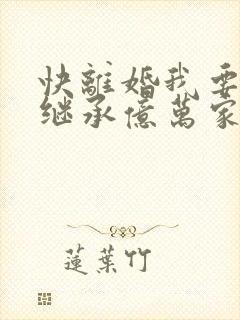 快離婚我要
继承億萬家
蓮葉竹